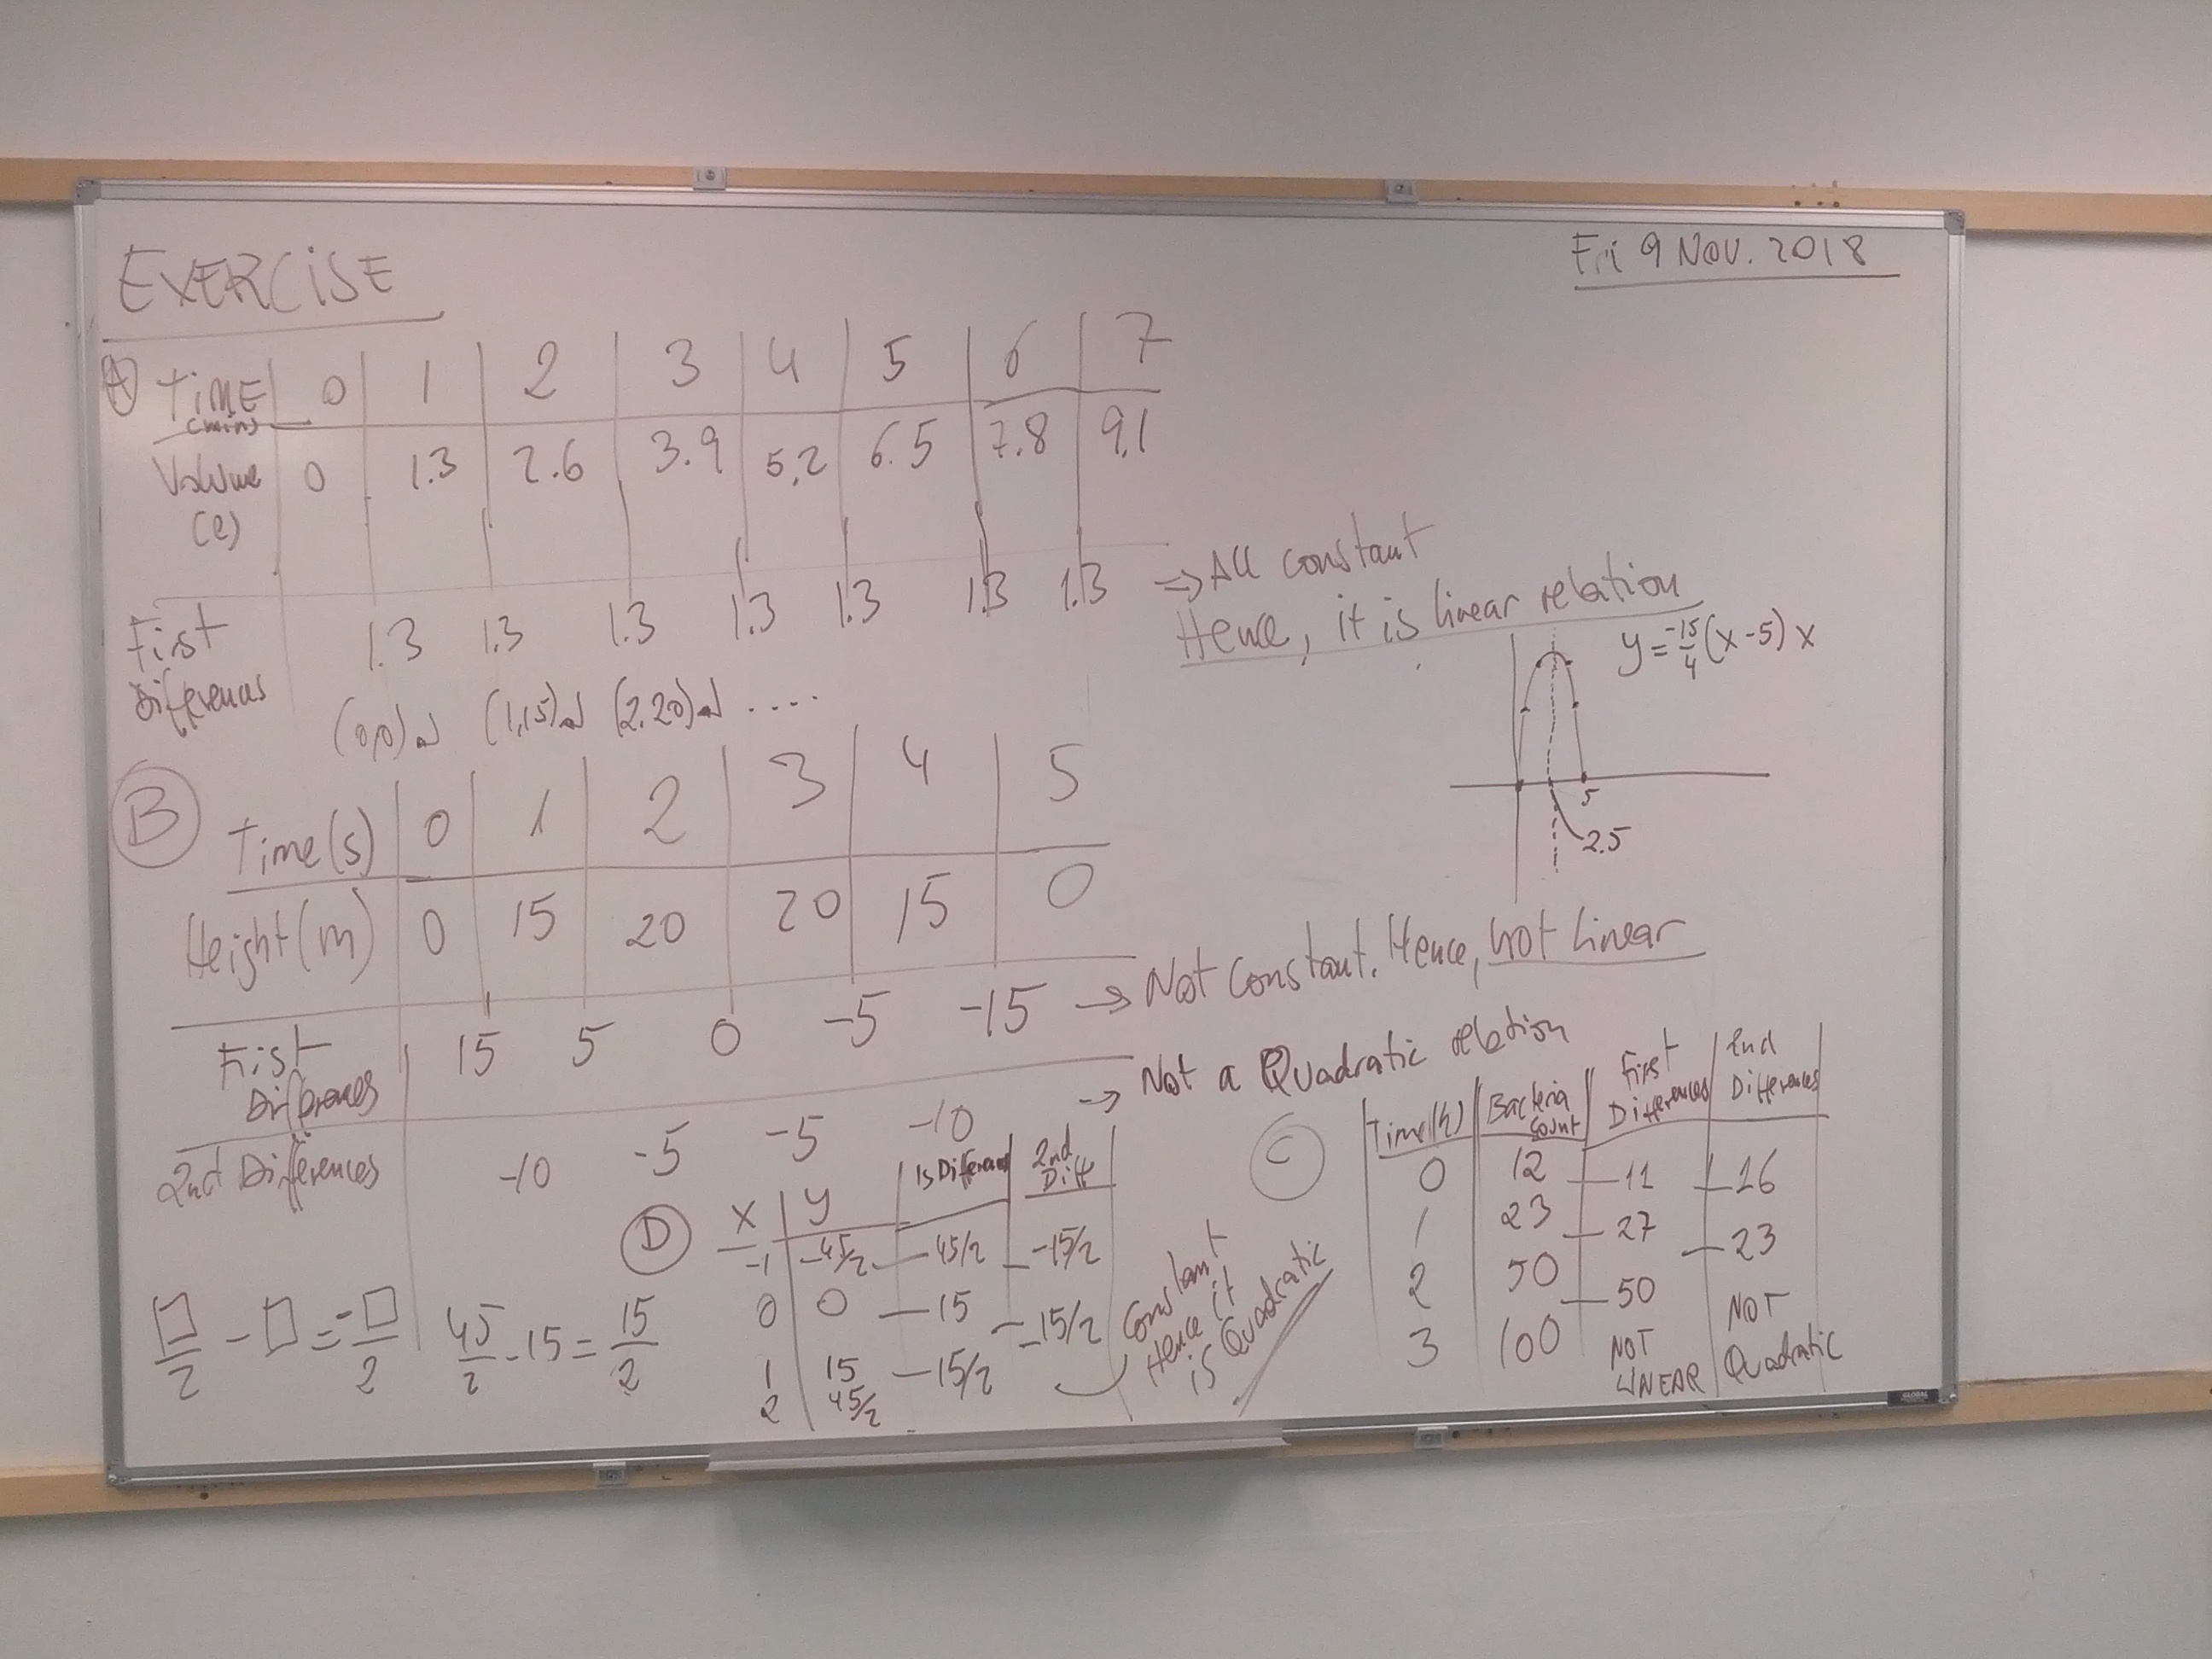 EXERCISE
Fri 9 NOV. 2018
A TIME (mins) 0 1 2 3 4 5 6 7
Volume (l) 0 1.3 2.6 3.9 5.2 6.5 7.8 9.1
First Differences 1.3 1.3 1.3 1.3 1.3 1.3 1.3 → All constant
Hence, it is linear relation
y = -15/4 (x-5) x
5
2.5
(0,0) (1,15) (2,20) ....
B Time(s) 0 1 2 3 4 5
Height(m) 0 15 20 20 15 0
First Differences 15 5 0 -5 -15 → Not constant. Hence, not linear
2nd Differences -10 -5 -5 -10 → Not a Quadratic relation
D x y 1s Differences 2nd Diff
-1 -45/2 45/2 -15/2
0 0 15 -15/2
1 15 15/2
2 45/2
Constant
Hence it
is Quadratic
□/2 - □ = -□/2
45/2 - 15 = 15/2
C Time(h) Bacteria Count First Differences 2nd Differences
0 12 11 16
1 23 27 23
2 50 50
3 100
NOT LINEAR
NOT Quadratic
GLOBAL